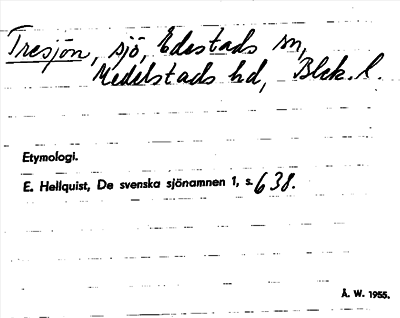 Tresjön, sjö, Edestads sn,
Medelstads hd, Blek. l.
Etymologi.
E. Hellquist, De svenska sjönamnen 1, s. 638.
Å. W. 1955.